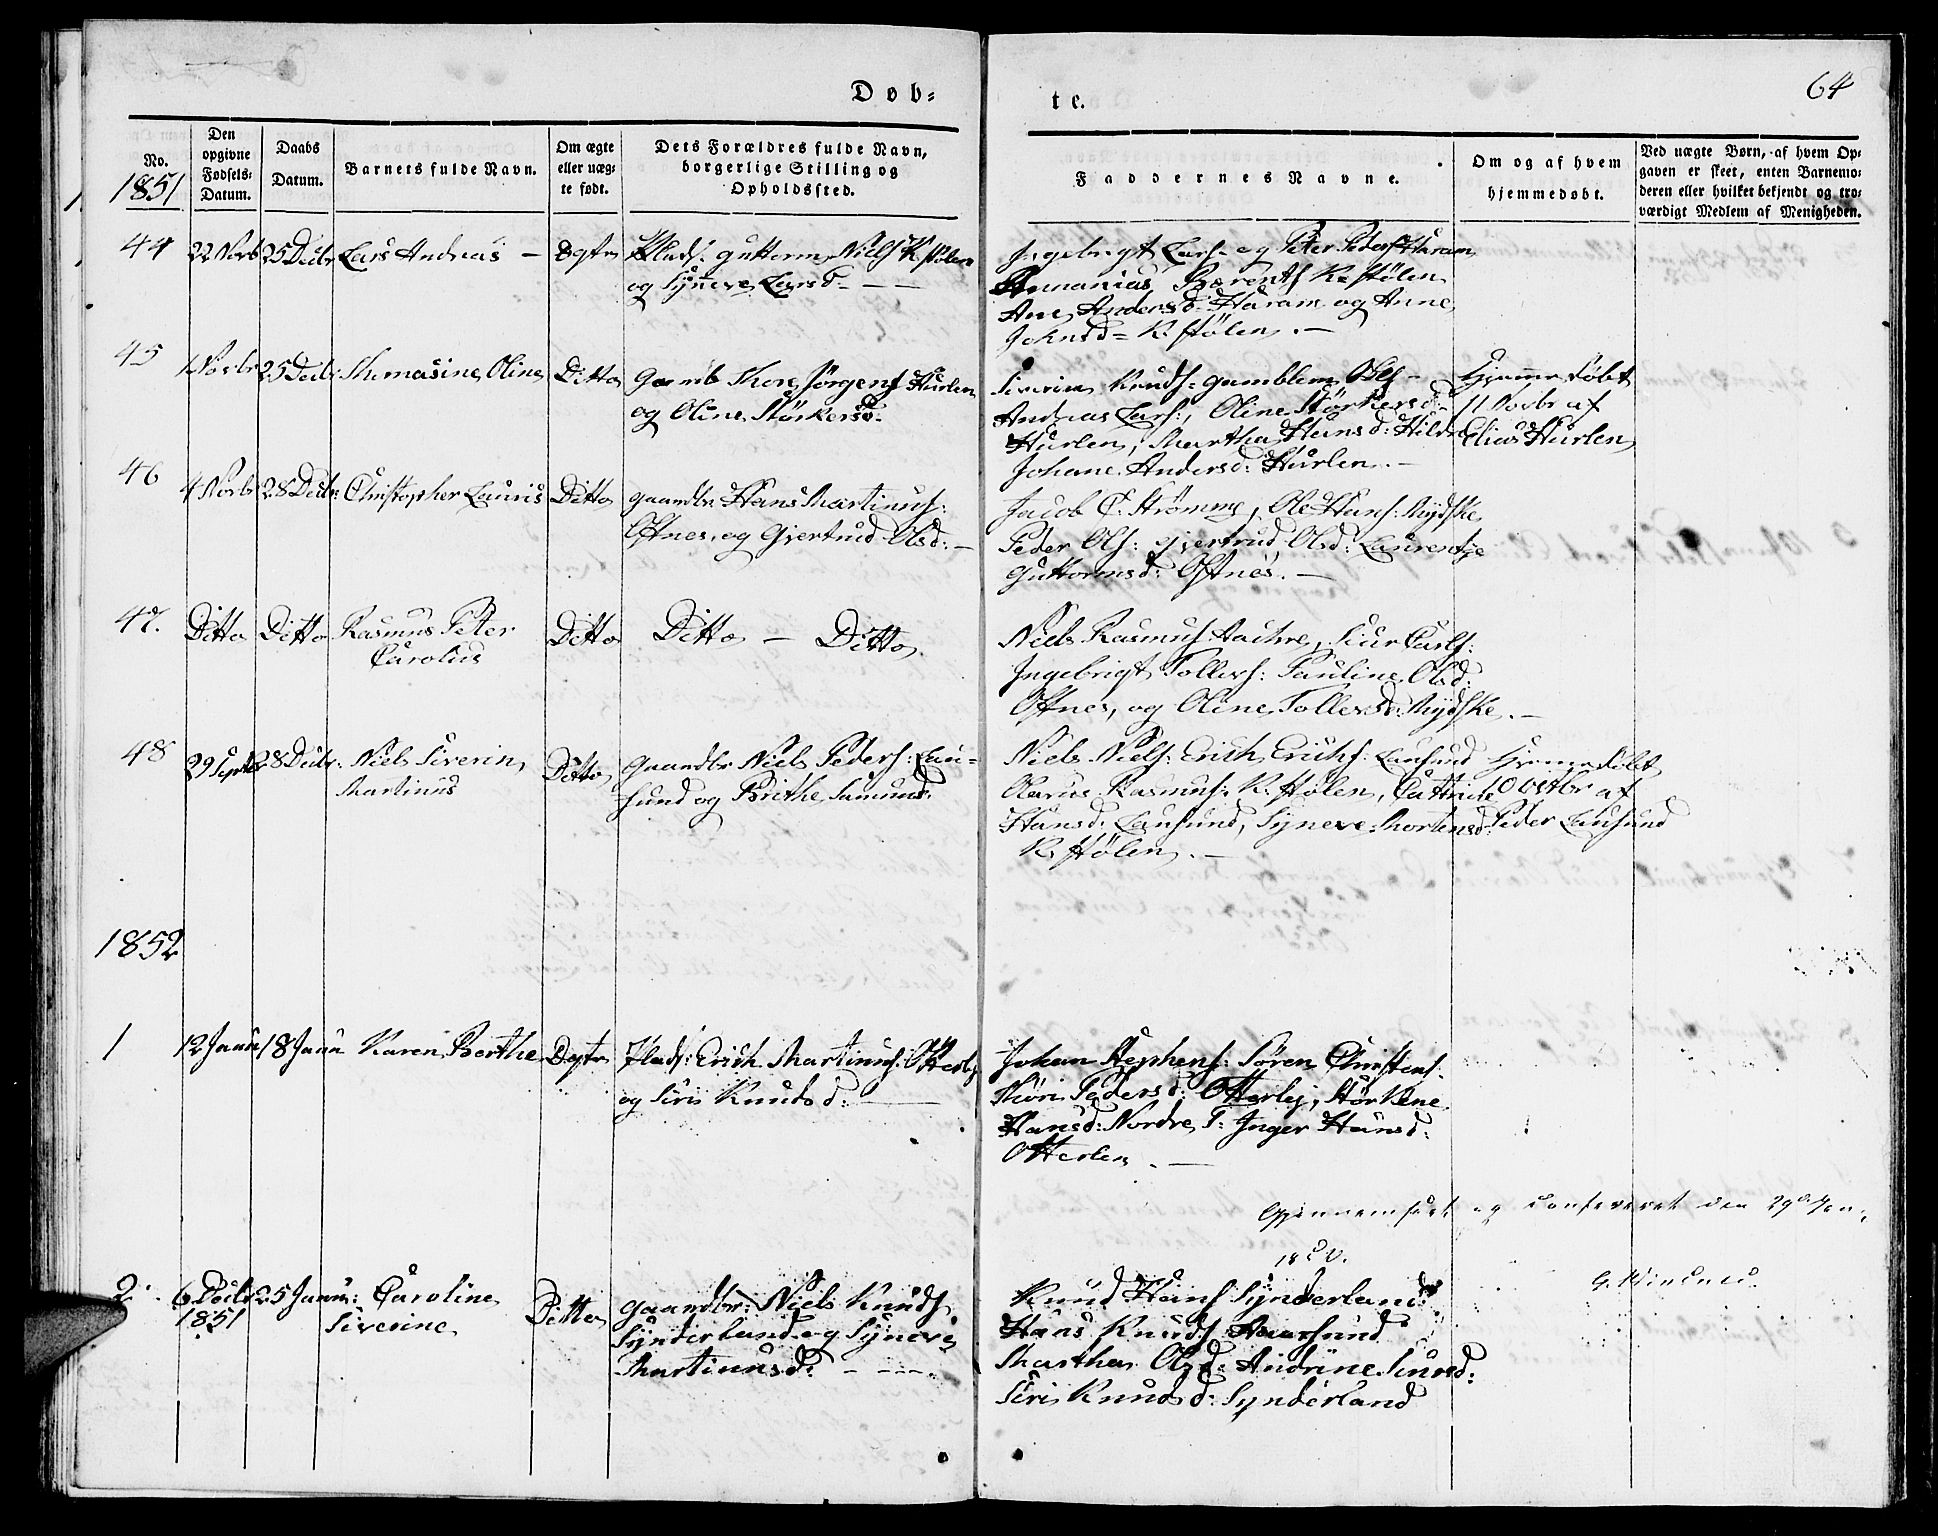 Døb=
te.
64
No.
1851
Den
opgivne
Fødsels=
Datum.
Daabs
Datum.
Barnets fulde Navn.
Om ægte
eller uæg=
te født.
Dets Forældres fulde Navn,
borgerlige Stilling og
Opholdssted.
Faddernes Navne.
Om og af hvem
hjemmedøbt.
Ved uægte Børn, af hvem Op=
gaven er skeet, enten Barnemo=
deren eller hvilket bekjendt og tro=
værdigt Medlem af Menigheden.
44 22 Novb 25 Decbr Lars Andreas — Ægte Pladsm: Guttorm Niels K.stølen
og Synneve Larsd. — —
Ingebrigt Lars. og Peter Peders. Haram
Annanias Bærents K.stølen
Ane Andersd. Haram og Anne
Johnsd= K.stølen. —
45 1 Novbr 25 Decbr Thomasine Oline Ditto Gaardb Thore Jørgens Hurlen
og Oline Størkersd.
Siverin Knuds: Gamblem Ols —
Andreas Lars:, Oline Størkersd:
Hurlen, Martha Hansd: Hildre
Johane Andersd: Hurlen. —
Hjemmedøbt
11 Novbr af
Elias Hurlen
46 4 Novbr 28 Decbr: Christopher Lauris Ditto Gaardbr: Hans Martinus:
Oftnes. og Gjertrud Olsd: —
Jacob C: Strømme, Ole Hans: Mydske
Peder Ols: Gjertrud Olsd: Laurentze
Guttormsd: Oftnes. —
47. Ditto Ditto Rasmus Peter
Carolius
Ditto Ditto — Ditto
Niels Rasmus. Aachre, Siur Carls:
Ingebrigt Tollevs: Pauline Olsd:
Oftnes, og Oline Tollevsd: Mydske. —
48 29 Septbr 28 Decbr: Niels Siverin
Martinus
Ditto Gaardbr Niels Peders: Lau=
sund og Brithe Samunsd.
Niels Niels: Erich Erichs: Lausund
Olarus Rasmus: K.stølen, Cathrine
Hansd: Lausund, Synneve Mortensd:
K.stølen. —
Hjemmedøbt
10 Octbr af
Peder Lausund
1852
1 12 Janu 18 Janu Karen Berthe Ægte Plads: Erich Martinus: Otterlej
og Siri Knudsd: —
Johan Stephens: Søren Christens.
Kiøri Pedersd: Otterlej, Størkene
Hansd: Nordre T: Inger Hansd:
Otterlen. —
Gjennemseet og confereret den 29de Jan.
1852.
2. 6 Decbr
1851
25 Janu: Caroline
Siverine
Ditto Gaardbr: Niels Knuds
Synderland og Syneve
Martinusd: — —
Knud Hans Synderland:
Hans Knuds: Aursund
Martha Olsd: Andrine Siursd:
Siri Knudsd: Synderland